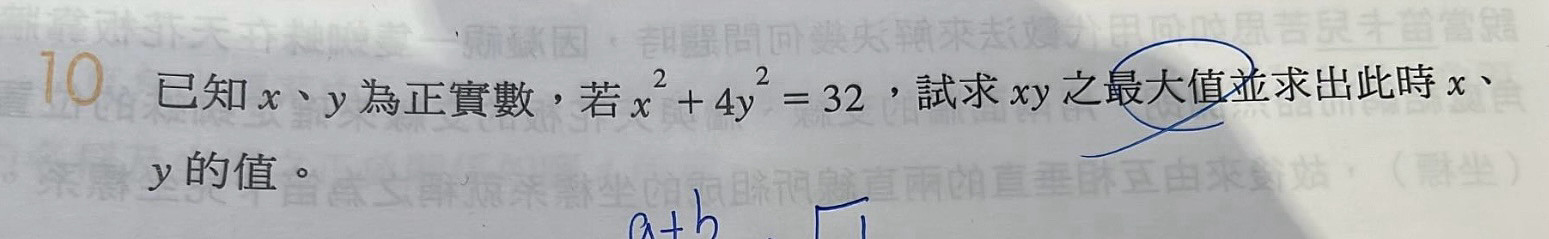 10 已知 x、y 為正實數，若 x² + 4y² = 32，試求 xy 之最大值並求出此時 x、
y 的值。
a+b